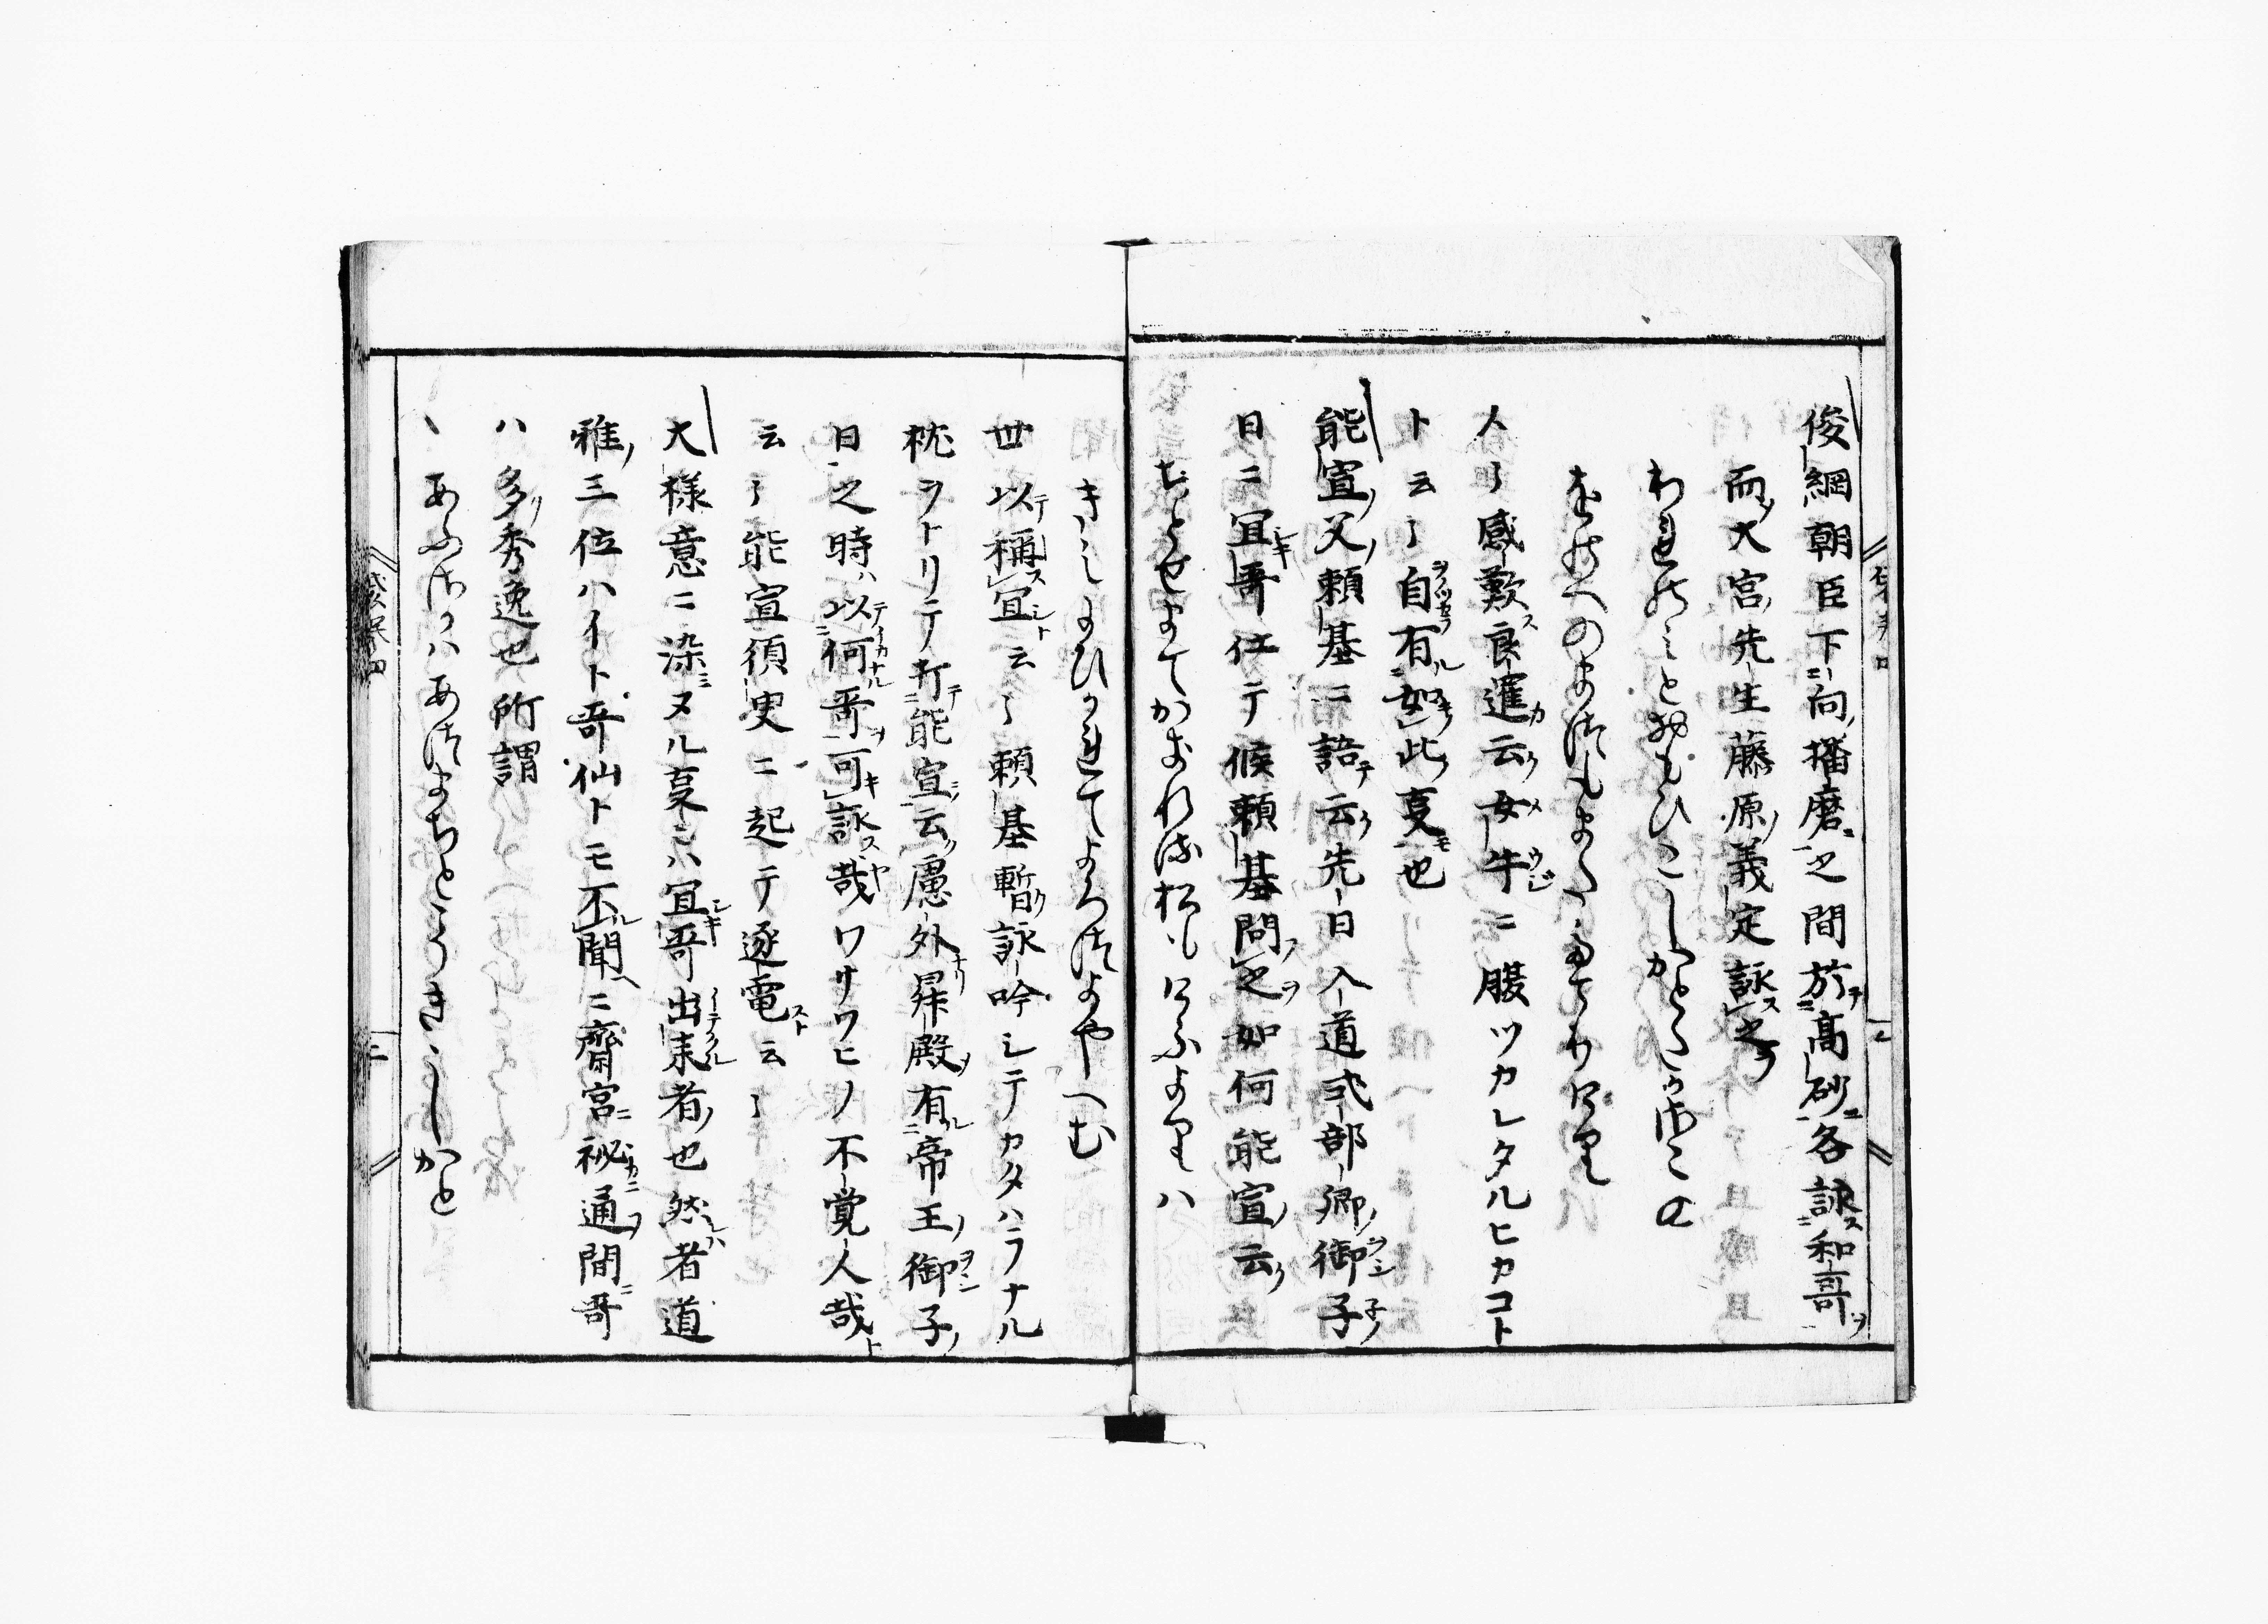 俊綱朝臣下向播磨之間於高砂各詠和哥
而大宮先生藤原義定詠之
われのみとおもひこしかとたかさこの
をのへのまつもまたたてりけり
人々感歎良暹云女牛ニ腹ツカレタルヒカコト
ト云々自有如此㕝也
能宣父頼基ニ語云先日入道式部卿御子
日ニ宜哥仕テ候頼基問之如何能宣云
ちとせまてかきれる松もけふよりハ
きみにひかれてよろつよやへむ
世以稱宜云々頼基暫詠吟シテカタハラナル
枕ヲトリテ打能宣云慮外昇殿有帝王御子
日之時ハ以何哥可詠哉ワサワヒノ不覚人哉ト
云々能宣須臾ニ起テ逐電云々
大様意ニ染ヌル㕝ニハ宜哥出来者也然者道
雅三位ハイト哥仙トモ不聞ニ齋宮ニ秘通間哥
ハ多秀逸也所謂
あふさかハあつまちとこそきゝしかと
袋草四
二